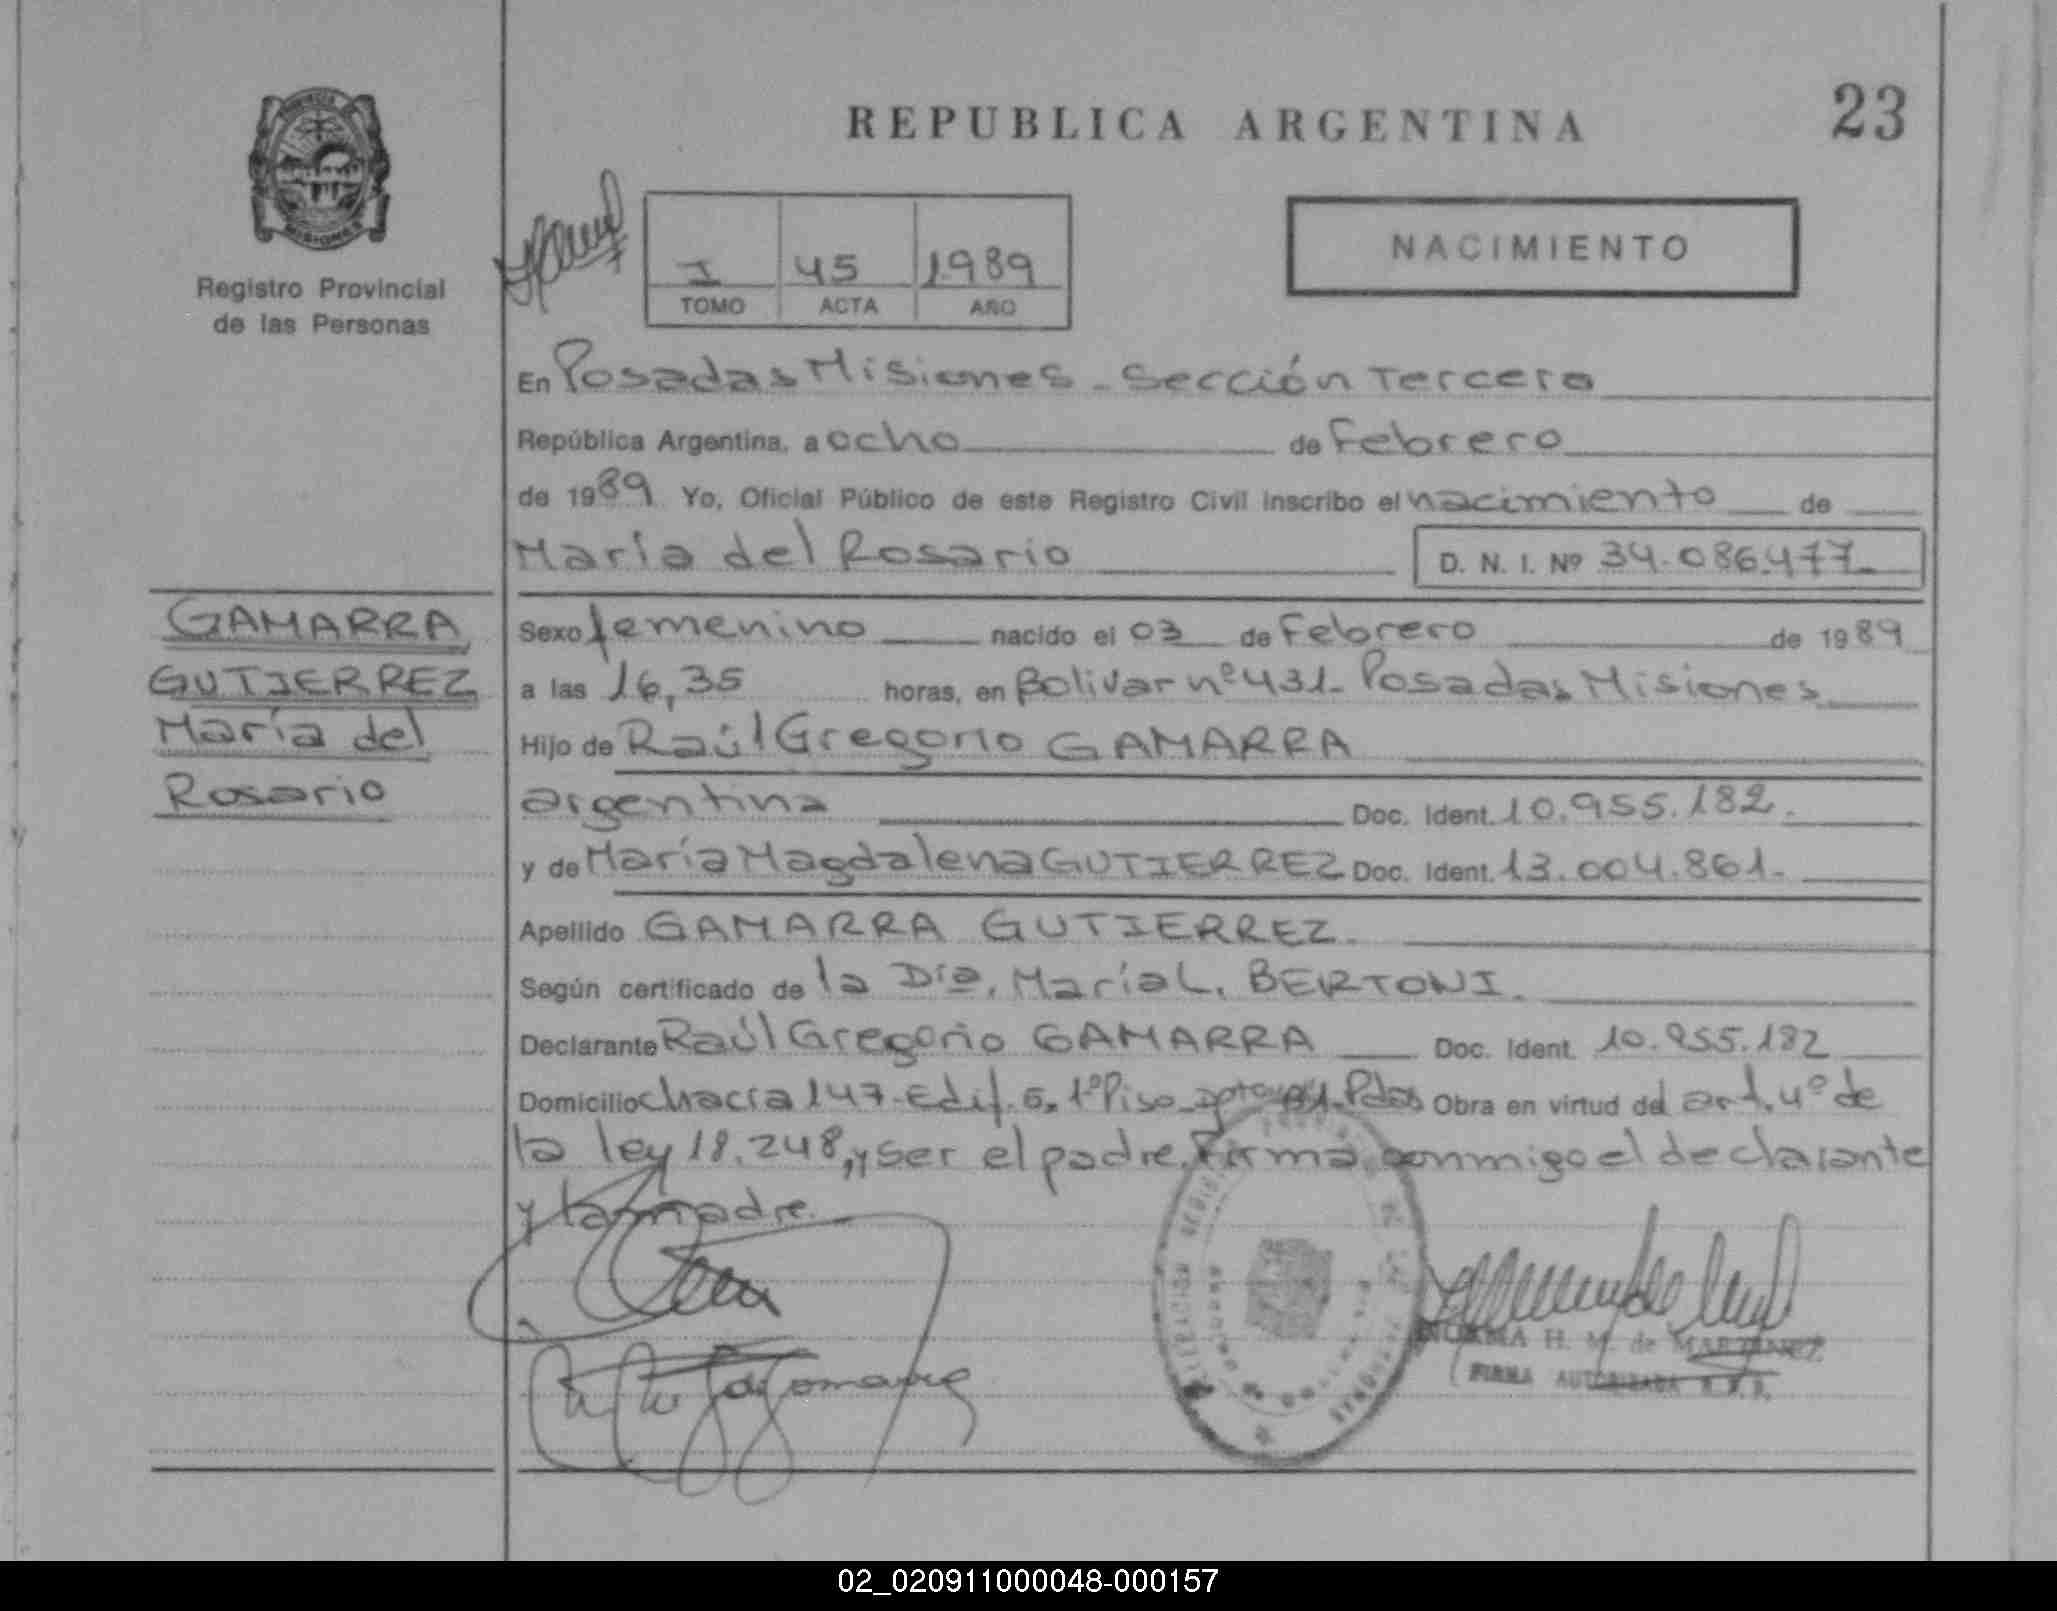 REPUBLICA ARGENTINA
23
MISIONES
Registro Provincial
de las Personas
I 45 1989
TOMO ACTA AÑO
NACIMIENTO
En Posadas Misiones - Sección Tercera
República Argentina, a ocho de Febrero
de 1989 Yo, Oficial Público de este Registro Civil inscribo el nacimiento de
María del Rosario D. N. I. Nº 34.086.477
GAMARRA
GUTIERREZ
María del
Rosario
Sexo femenino nacido el 03 de Febrero de 1989
a las 16,35 horas, en Bolivar nº 431- Posadas Misiones
Hijo de Raúl Gregorio GAMARRA
argentina Doc. Ident. 10.955.182.
y de María Magdalena GUTIERREZ Doc. Ident. 13.004.861.
Apellido GAMARRA GUTIERREZ.
Según certificado de la Dra. María L. BERTONI.
Declarante Raúl Gregorio GAMARRA Doc. Ident. 10.955.182
Domicilio chacra 147- Edif. 5, 1º Piso Pdas Obra en virtud del art. 4º de
la ley 18.248, y ser el padre. Firma conmigo el declarante
y la madre.
NORMA H. M. de MARTINEZ
FIRMA AUTORIZADA R.P.P.
02_020911000048-000157